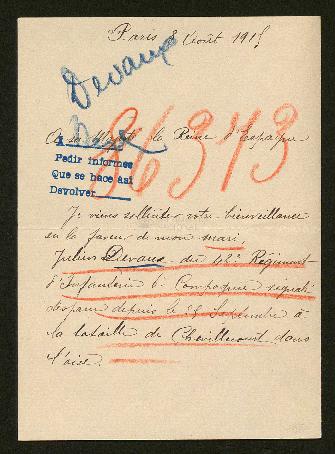 Paris 8 Août 1915
Devaux
A sa Majesté la Reine d'Espagne
86373
Pedir informes
Que se hace así
Devolver
Je viens solliciter votre bienveillance
en la faveur de mon mari
Julien Devaux du 42e Régiment
d'Infanterie 6e Compagnie
depuis le Septembre à
la bataille de dans
l'aise.